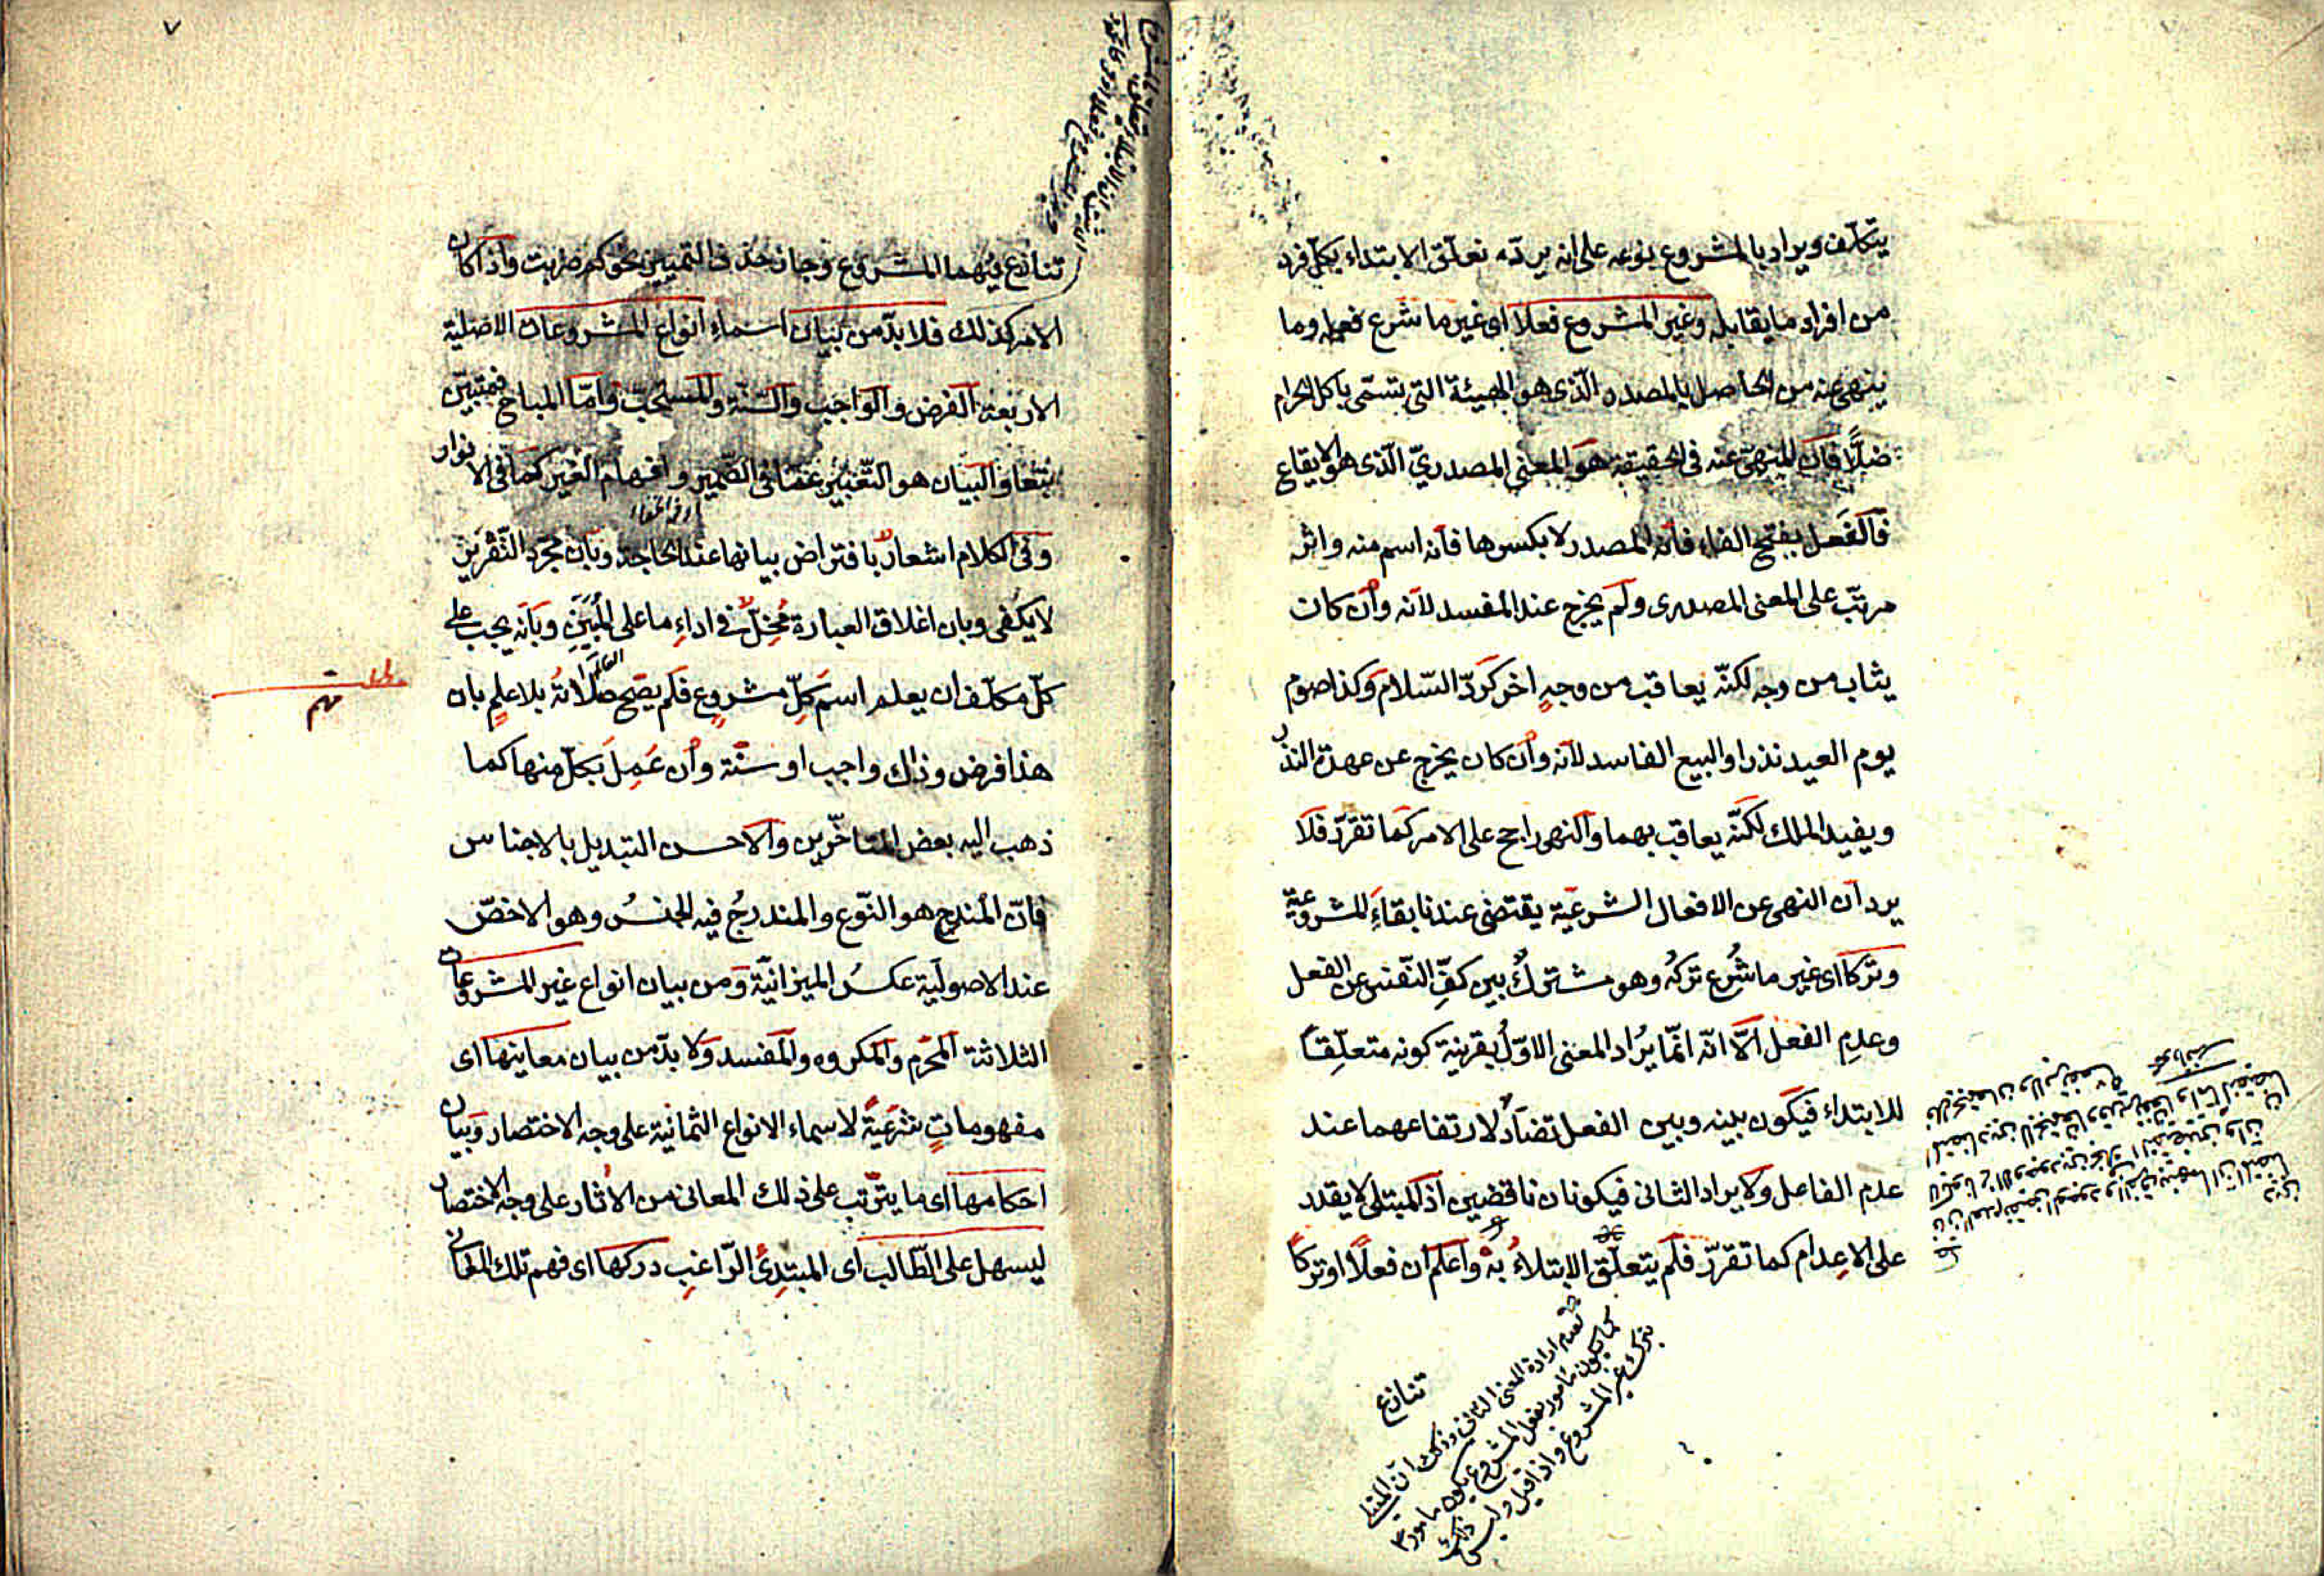 يتكلّف ويراد بالمشروع نوعه على انه يردّه تعلّق الابتداء بكلّ فرد
من افراد ما يقابله وغير المشروع فعلا اى غير ما شرع فعله وما
ينهى عنه من الحاصل بالمصدر الّذى هو الهيئة التى تسمّى باكل الحرام
فانّ المنهىّ عنه فى الحقيقة هو المعنى المصدرىّ الّذى هو الايقاع
فالفَعل بفتح الفاء فانّه المصدر لا بكسرها فانّه اسم منه واثر
مرتّب على المعنى المصدرى ولم يخرج عند المفسد لانّه وان كان
يثاب من وجه لكنّه يعاقب من وجهٍ اخر كردّ السّلام وكذا صوم
يوم العيد نذرا والبيع الفاسد لانّه وان كان يخرج عن عهدة النذر
ويفيد الملك لكنّه يعاقب بهما والنهى راجح على الامر كما تقرّر فلا
يرد ان النهى عن الافعال الشرعيّة يقتضى عندنا بقاءَ المشروعيّة
وتركا اى غير ما شُرع تركُه وهو مشتركٌ بين كفّ النّفس عن الفعل
وعدمِ الفعل الّا انّه انّما يُراد المعنى الاوّلُ بقرينة كونه متعلّقاً
للابتداء فيكون بينه وبين الفعل تضادٌ لارتفاعهما عند
عدم الفاعل ولا يراد الثانى فيكونان ناقضين اذ المبتلى لا يقدر
على الاعدام كما تقرّر فلم يتعلّق الابتلاءُ به واعلم ان فعلًا او تركاً
لعدم ارادة المعنى الثانى وذلك ان المبتلى
كما يكون مأمور بفعل المشروع يكون مأمورا
بترك غير المشروع واذا قيل وليس
ذلك
تنازع
٧
تنازع فيهما المشروع وجاز حذف التمييز نحو كم ضربت واذا كان
الامر كذلك فلا بدّ من بيان اسماءِ انواع المشروعات الاصليّة
الاربعة الفرض والواجب والسّنّة والمستحبّ وامّا المباح فمتبيّن
تبعا والبيان هو التّعبير عمّا فى الضّمير وافهام الغير كما فى الانوار
وفى الكلام اشعارٌ بافتراض بيانها عند الحاجة وبان مجرّد التّقرير
لا يكفى وبان اغلاق العبارة مُخِلٌّ فى اداءِ ما على المُبَيِّنِ وبانّه يجب على
كلّ مكلّف ان يعلم اسمَ كلِّ مشروعٍ فلم يصح صلاتهُ بلا علمٍ بان
هذا فرض وذاك واجب او سنّة وان عَمِلَ بكلّ منها كما
ذهب اليه بعض المتأخّرين والاحسن التبديل بالاجناس
فانّ المُندرِج هو النّوع والمندرجُ فيه الجنسُ وهو الاخصّ
عند الاصوليّة عكسُ الميزانيّة ومن بيان انواع غير المشروعات
الثلاثة المحرّم والمكروه والمفسد ولا بدّ من بيان معاينها اى
مفهوماتٍ شرعيّةً لاسماء الانواع الثمانية على وجه الاختصار وبيان
احكامها اى ما يترتّب على ذلك المعانى من الاثار على وجه الاختصار
ليسهل على الطّالب اى المبتدِئ الرّاغبِ دركها اى فهم تلك المعانى